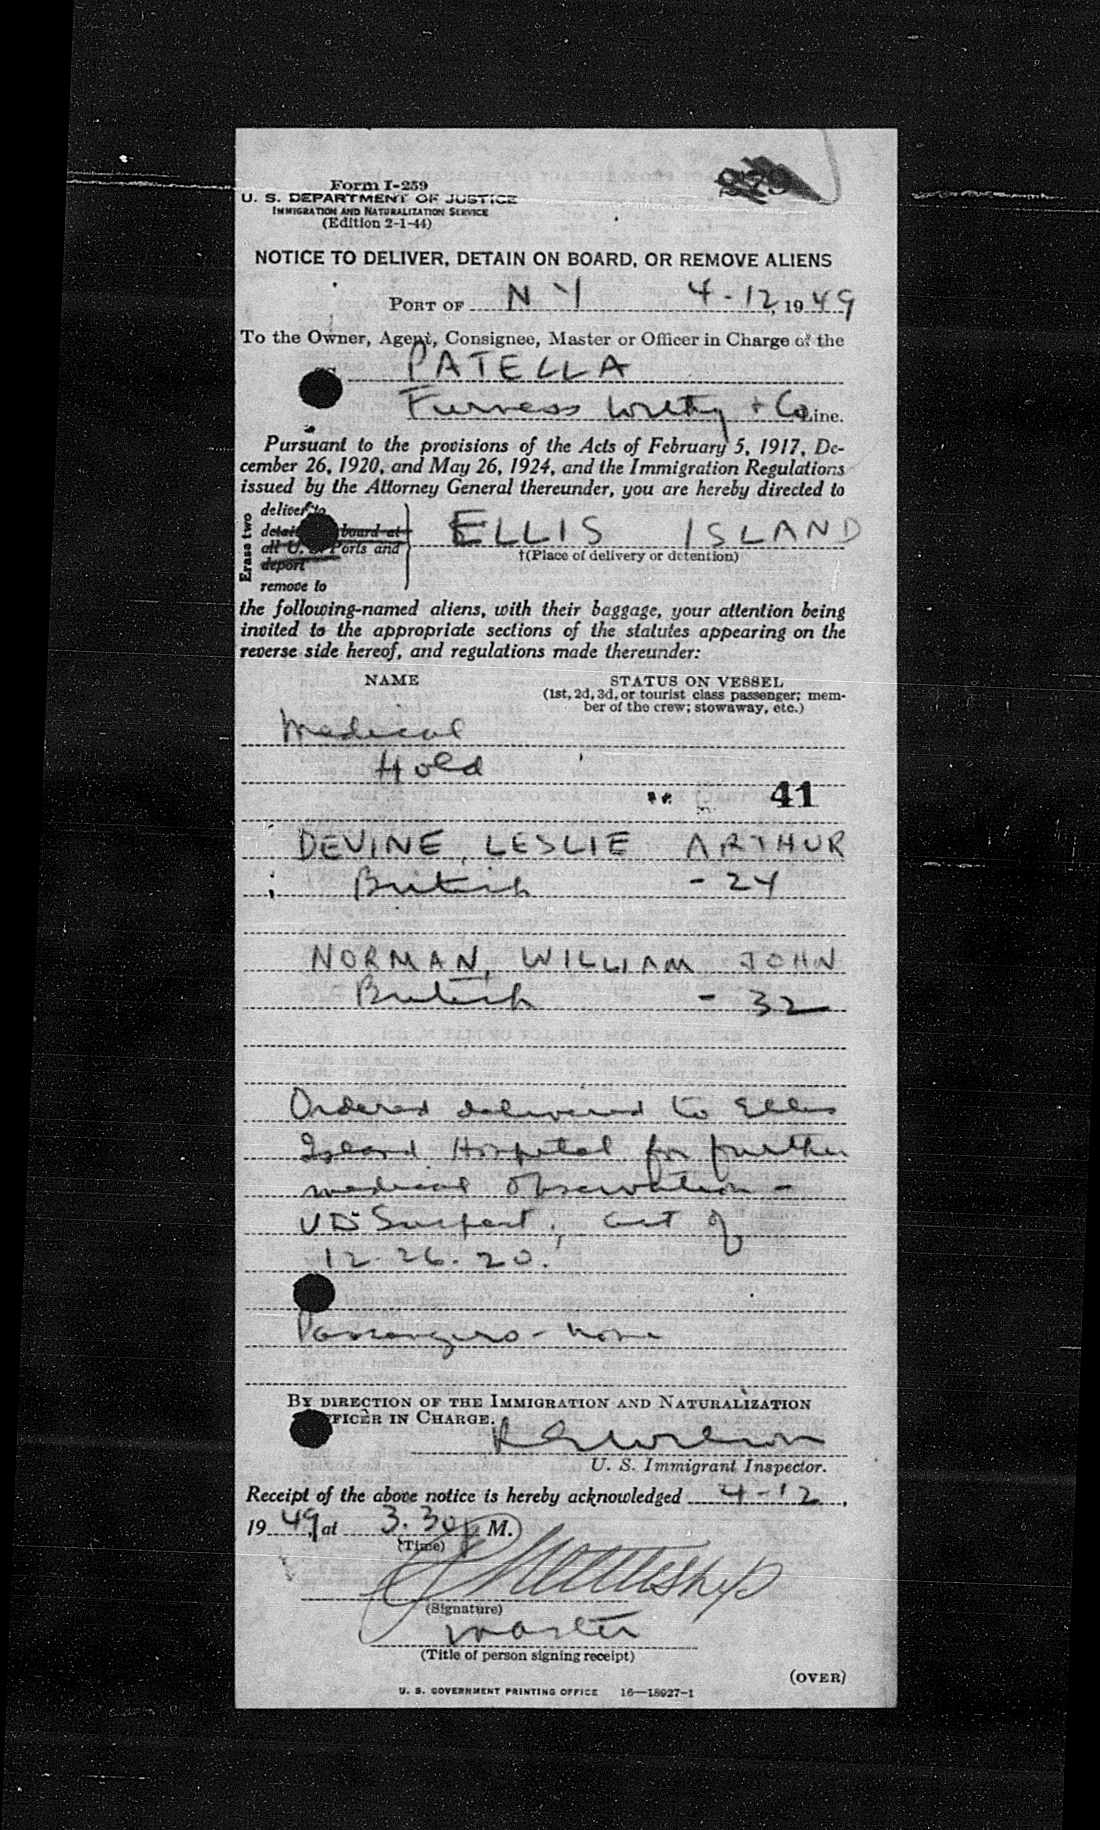 Form I-259
U. S. DEPARTMENT OF JUSTICE
IMMIGRATION AND NATURALIZATION SERVICE
(Edition 2-1-44)
NOTICE TO DELIVER, DETAIN ON BOARD, OR REMOVE ALIENS
PORT OF N Y 4-12, 1949
To the Owner, Agent, Consignee, Master or Officer in Charge of the
PATELLA
Furness Withy + Co Line.
Pursuant to the provisions of the Acts of February 5, 1917, De-
cember 26, 1920, and May 26, 1924, and the Immigration Regulations
issued by the Attorney General thereunder, you are hereby directed to
Erase two
deliver to
detain board at
all U. S. Ports and
deport
remove to
ELLIS ISLAND
†(Place of delivery or detention)
the following-named aliens, with their baggage, your attention being
invited to the appropriate sections of the statutes appearing on the
reverse side hereof, and regulations made thereunder:
NAME STATUS ON VESSEL
(1st, 2d, 3d, or tourist class passenger; mem-
ber of the crew; stowaway, etc.)
Medical
Hold
41
DEVINE, LESLIE ARTHUR
British - 24
NORMAN, WILLIAM JOHN
British - 32
Ordered delivered to Ellis
Island Hospital for further
medical observation -
VD Suspect; act of
12-26-20.
Passengers - none
BY DIRECTION OF THE IMMIGRATION AND NATURALIZATION
OFFICER IN CHARGE.
U. S. Immigrant Inspector.
Receipt of the above notice is hereby acknowledged 4-12,
1949, at 3.30 p M.
(Time)
(Signature)
master
(Title of person signing receipt)
(OVER)
U. S. GOVERNMENT PRINTING OFFICE 16—18927-1